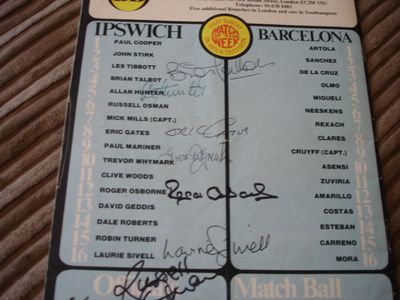 Five additional Branches in London and one in Southampton
IPSWICH
MATCH OF THE WEEK
BARCELONA
1 PAUL COOPER ARTOLA 1
2 JOHN STIRK SANCHEZ 2
3 LES TIBBOTT DE LA CRUZ 3
4 BRIAN TALBOT OLMO 4
5 ALLAN HUNTER MIGUELI 5
6 RUSSELL OSMAN NEESKENS 6
7 MICK MILLS (CAPT.) REXACH 7
8 ERIC GATES CLARES 8
9 PAUL MARINER CRUYFF (CAPT.) 9
10 TREVOR WHYMARK ASENSI 10
11 CLIVE WOODS ZUVIRIA 11
12 ROGER OSBORNE AMARILLO 12
13 DAVID GEDDIS COSTAS 13
14 DALE ROBERTS ESTEBAN 14
15 ROBIN TURNER CARRENO 15
16 LAURIE SIVELL MORA 16
Laurie Sivell
Russell Osman
Match Ball